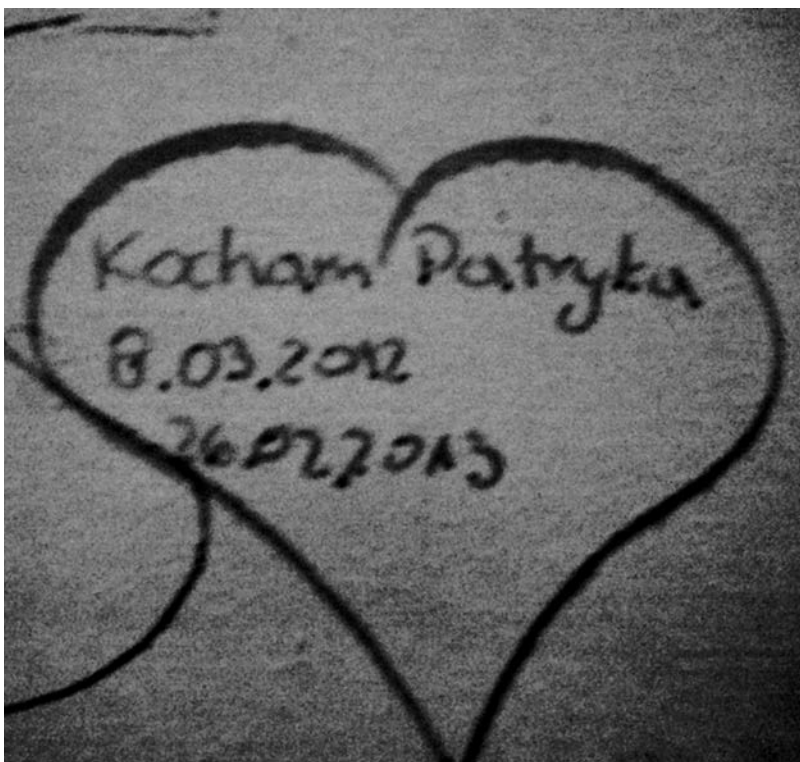 Kocham Patryka
8.03.2012
26.02.2013